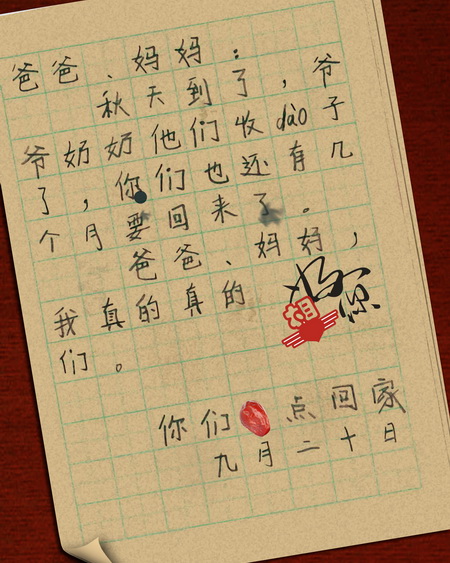 爸爸、妈妈：
秋天到了，爷
爷奶奶他们收dào子
了，你们也还有几
个月要回来了。
爸爸、妈妈，
我真的真的好想你
们。
你们点回家
九月二十日